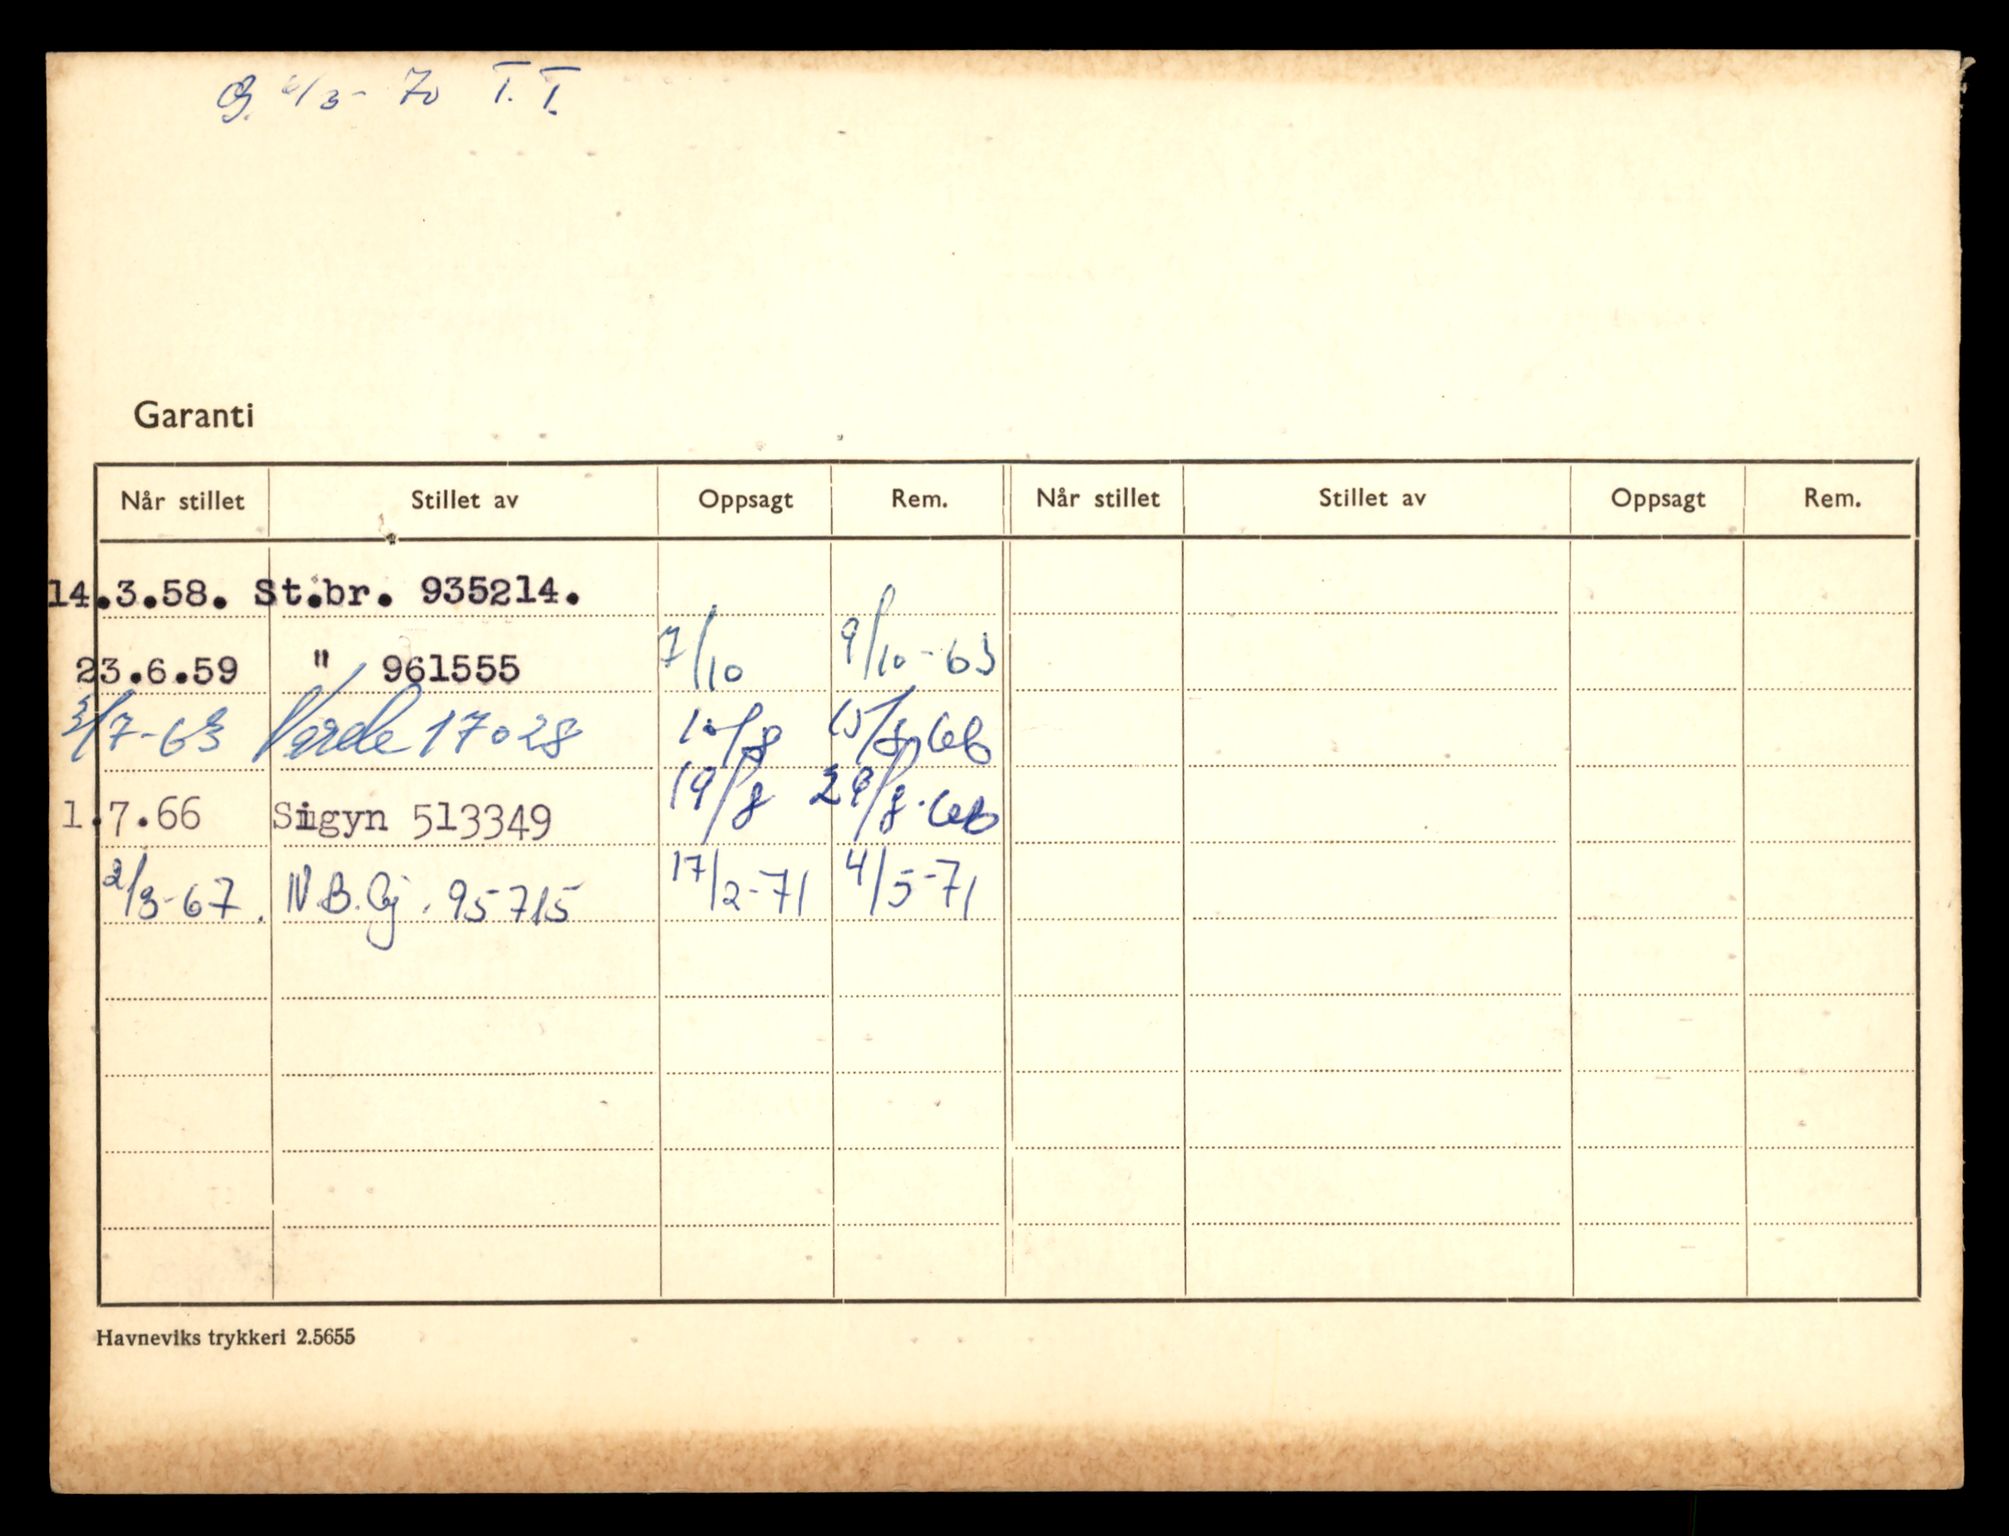 G. 6/3- 70 T. T.
Garanti
Når stillet Stillet av Oppsagt Rem. Når stillet Stillet av Oppsagt Rem.
14.3.58. St.br. 935214.
23.6.59 " 961555 7/10 9/10-63
3/7-63 Varde 17028 10/8 15/8-66
1.7.66 Sigyn 513349 19/8 29/8-66
2/3-67. N.B.Gj. 95715 17/2-71 4/5-71
Havneviks trykkeri 2.5655